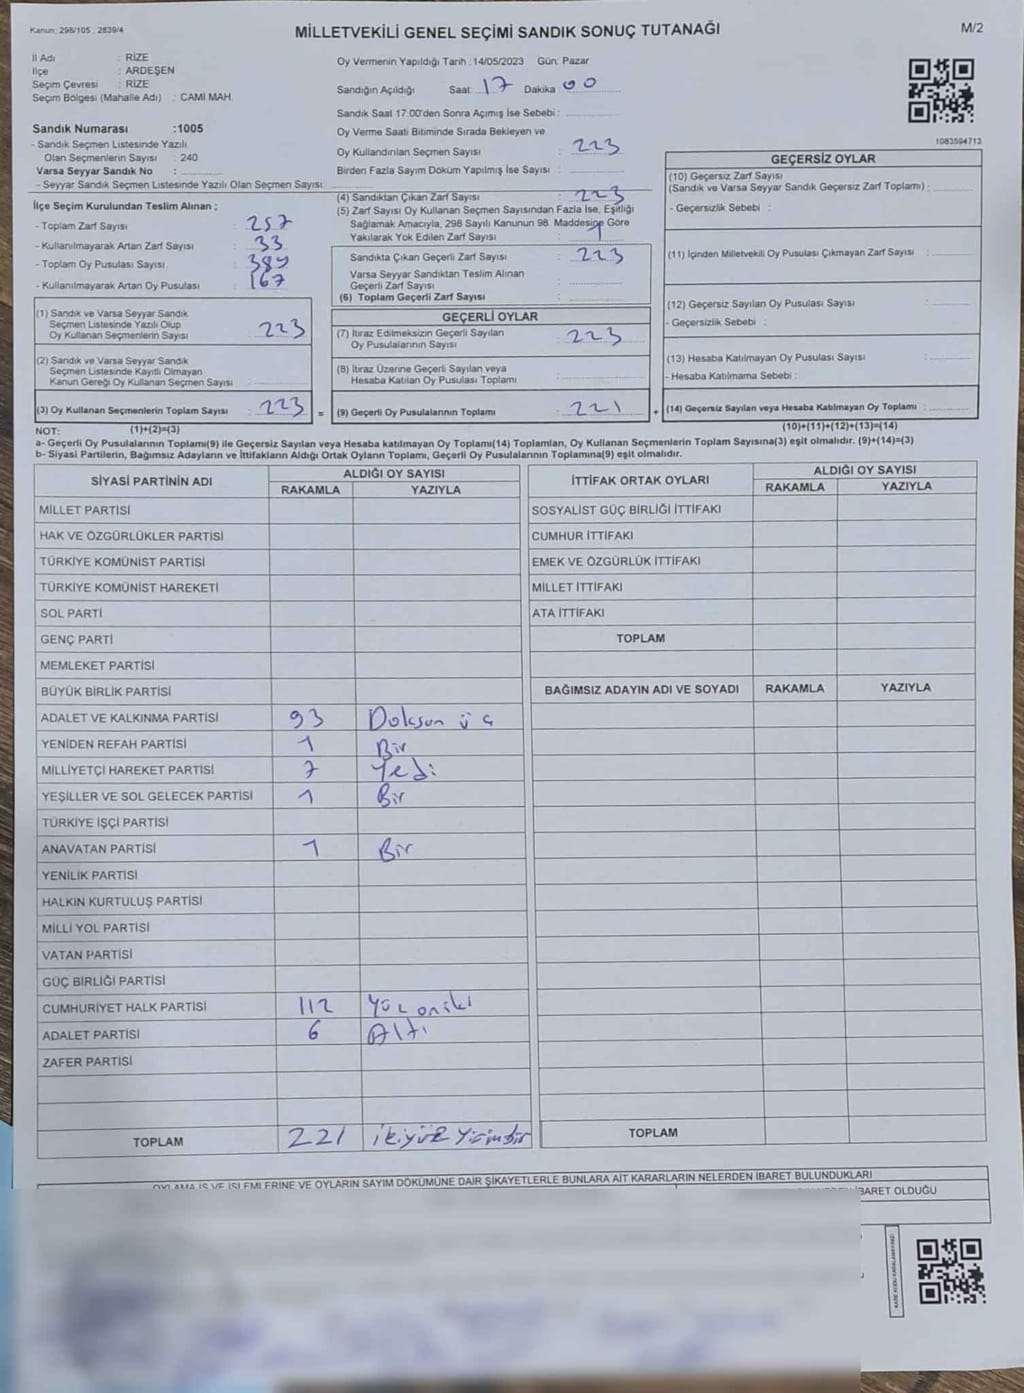 Kanun: 298/105 , 2839/4
MİLLETVEKİLİ GENEL SEÇİMİ SANDIK SONUÇ TUTANAĞI
M/2
İl Adı : RİZE
İlçe : ARDEŞEN
Seçim Çevresi : RİZE
Seçim Bölgesi (Mahalle Adı) : CAMİ MAH.
Sandık Numarası :1005
- Sandık Seçmen Listesinde Yazılı
Olan Seçmenlerin Sayısı : 240
Varsa Seyyar Sandık No :
- Seyyar Sandık Seçmen Listesinde Yazılı Olan Seçmen Sayısı:
İlçe Seçim Kurulundan Teslim Alınan ;
- Toplam Zarf Sayısı : 257
- Kullanılmayarak Artan Zarf Sayısı : 33
- Toplam Oy Pusulası Sayısı : 389
- Kullanılmayarak Artan Oy Pusulası : 167
(1) Sandık ve Varsa Seyyar Sandık
Seçmen Listesinde Yazılı Olup
Oy Kullanan Seçmenlerin Sayısı : 223
(2) Sandık ve Varsa Seyyar Sandık
Seçmen Listesinde Kayıtlı Olmayan
Kanun Gereği Oy Kullanan Seçmen Sayısı :
(3) Oy Kullanan Seçmenlerin Toplam Sayısı : 223 =
Oy Vermenin Yapıldığı Tarih :14/05/2023 Gün: Pazar
Sandığın Açıldığı Saat: 17 Dakika 00
Sandık Saat 17:00'den Sonra Açımış İse Sebebi :
Oy Verme Saati Bitiminde Sırada Bekleyen ve
Oy Kullandırılan Seçmen Sayısı : 223
Birden Fazla Sayım Döküm Yapılmış İse Sayısı :
(4) Sandıktan Çıkan Zarf Sayısı : 223
(5) Zarf Sayısı Oy Kullanan Seçmen Sayısından Fazla İse, Eşitliği
Sağlamak Amacıyla, 298 Sayılı Kanunun 98. Maddesine Göre
Yakılarak Yok Edilen Zarf Sayısı : 1
Sandıkta Çıkan Geçerli Zarf Sayısı : 223
Varsa Seyyar Sandıktan Teslim Alınan
Geçerli Zarf Sayısı :
(6) Toplam Geçerli Zarf Sayısı :
GEÇERLİ OYLAR
(7) İtiraz Edilmeksizin Geçerli Sayılan
Oy Pusulalarının Sayısı : 223
(8) İtiraz Üzerine Geçerli Sayılan veya
Hesaba Katılan Oy Pusulası Toplamı :
(9) Geçerli Oy Pusulalarının Toplamı : 221 +
1083594713
GEÇERSİZ OYLAR
(10) Geçersiz Zarf Sayısı
(Sandık ve Varsa Seyyar Sandık Geçersiz Zarf Toplamı) :
- Geçersizlik Sebebi :
(11) İçinden Milletvekili Oy Pusulası Çıkmayan Zarf Sayısı :
(12) Geçersiz Sayılan Oy Pusulası Sayısı :
- Geçersizlik Sebebi :
(13) Hesaba Katılmayan Oy Pusulası Sayısı :
- Hesaba Katılmama Sebebi :
(14) Geçersiz Sayılan veya Hesaba Katılmayan Oy Toplamı :
NOT: (1)+(2)=(3) (10)+(11)+(12)+(13)=(14)
a- Geçerli Oy Pusulalarının Toplamı(9) ile Geçersiz Sayılan veya Hesaba katılmayan Oy Toplamı(14) Toplamları, Oy Kullanan Seçmenlerin Toplam Sayısına(3) eşit olmalıdır. (9)+(14)=(3)
b- Siyasi Partilerin, Bağımsız Adayların ve İttifakların Aldığı Ortak Oyların Toplamı, Geçerli Oy Pusulalarının Toplamına(9) eşit olmalıdır.
SİYASİ PARTİNİN ADI ALDIĞI OY SAYISI
RAKAMLA YAZIYLA
MİLLET PARTİSİ
HAK VE ÖZGÜRLÜKLER PARTİSİ
TÜRKİYE KOMÜNİST PARTİSİ
TÜRKİYE KOMÜNİST HAREKETİ
SOL PARTİ
GENÇ PARTİ
MEMLEKET PARTİSİ
BÜYÜK BİRLİK PARTİSİ
ADALET VE KALKINMA PARTİSİ 93 Doksan üç
YENİDEN REFAH PARTİSİ 1 Bir
MİLLİYETÇİ HAREKET PARTİSİ 7 Yedi
YEŞİLLER VE SOL GELECEK PARTİSİ 1 Bir
TÜRKİYE İŞÇİ PARTİSİ
ANAVATAN PARTİSİ 1 Bir
YENİLİK PARTİSİ
HALKIN KURTULUŞ PARTİSİ
MİLLİ YOL PARTİSİ
VATAN PARTİSİ
GÜÇ BİRLİĞİ PARTİSİ
CUMHURİYET HALK PARTİSİ 112 Yüz oniki
ADALET PARTİSİ 6 Altı
ZAFER PARTİSİ
TOPLAM 221 ikiyüz yirmibir
İTTİFAK ORTAK OYLARI ALDIĞI OY SAYISI
RAKAMLA YAZIYLA
SOSYALİST GÜÇ BİRLİĞİ İTTİFAKI
CUMHUR İTTİFAKI
EMEK VE ÖZGÜRLÜK İTTİFAKI
MİLLET İTTİFAKI
ATA İTTİFAKI
TOPLAM
BAĞIMSIZ ADAYIN ADI VE SOYADI RAKAMLA YAZIYLA
TOPLAM
OYLAMA İŞ VE İŞLEMLERİNE VE OYLARIN SAYIM DÖKÜMÜNE DAİR ŞİKAYETLERLE BUNLARA AİT KARARLARIN NELERDEN İBARET BULUNDUKLARI
İBARET OLDUĞU